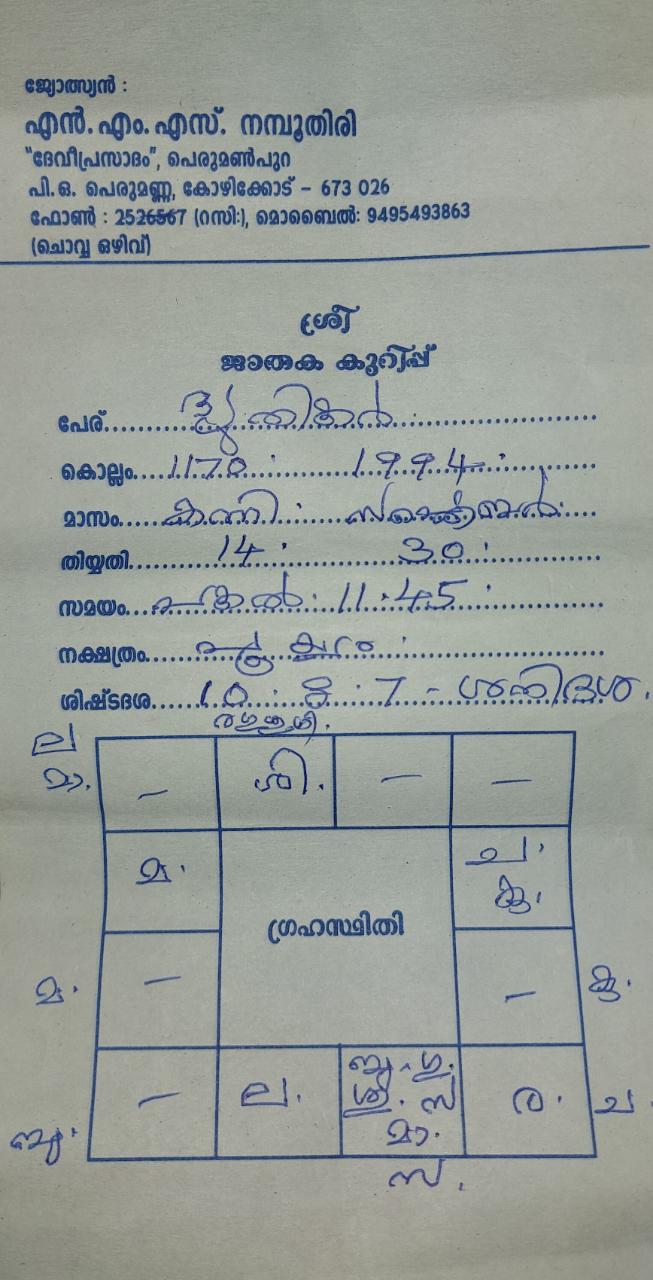 ജ്യോത്സ്യൻ :
എൻ.എം.എസ്. നമ്പൂതിരി
"ദേവീപ്രസാദം", പെരുമൺപുറ
പി.ഒ. പെരുമണ്ണ, കോഴിക്കോട് – 673 026
ഫോൺ : 2526567 (റസി:), മൊബൈൽ: 9495493863
(ചൊവ്വ ഒഴിവ്)
ശ്രീ
ജാതക കുറിപ്പ്
പേര്
കൊല്ലം 1170 : 1994 :
മാസം കന്നി : സെപ്റ്റംബർ
തിയ്യതി 14 : 30 :
സമയം പകൽ 11.45
നക്ഷത്രം പൂയ്യം :
ശിഷ്ടദശ 10 : 8 : 7 - ശനിദശ.
ല
മാ. – ശി. – –
മ. ച.
കു.
ഗ്രഹസ്ഥിതി
മ. – – കു.
ബു. ഗു.
– ല. ശു. സ ര. ച.
ബു. മാ.
സ.